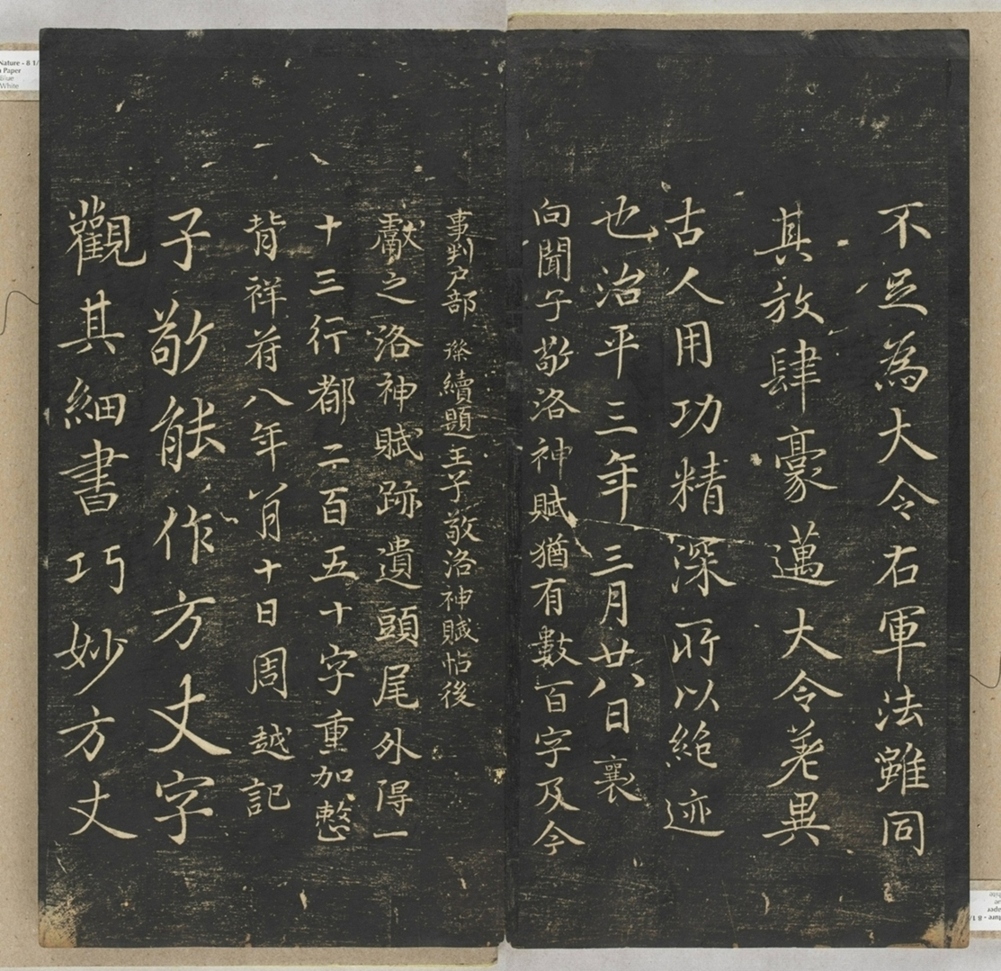 不足為大令右軍法雖同
其放肆豪邁大令差異
古人用功精深所以絕迹
也治平三年三月廿八日襄
向聞子敬洛神賦猶有數百字及今
事判戶部 粲續題王子敬洛神賦帖後
獻之洛神賦跡遺頭尾外得一
十三行都二百五十字重加整
背祥符八年八月十日周越記
子敬能作方丈字
觀其細書巧妙方丈
Nature - 8 1/
Paper
Blue
White